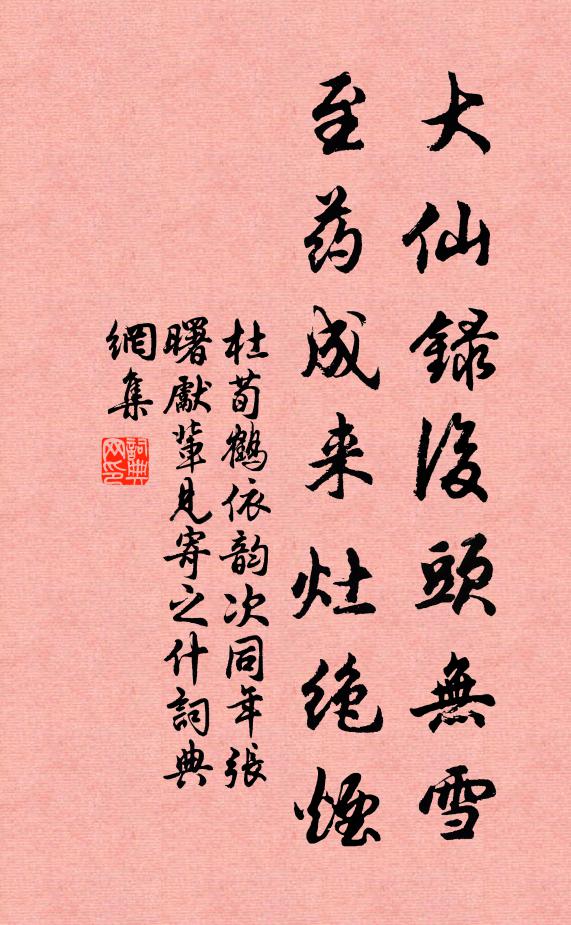 大仙録後頭無雪
至药成来灶绝煙
杜荀鶴依韵次同年張
曙獻輩見寄之什詞典
網集
詞典
网印